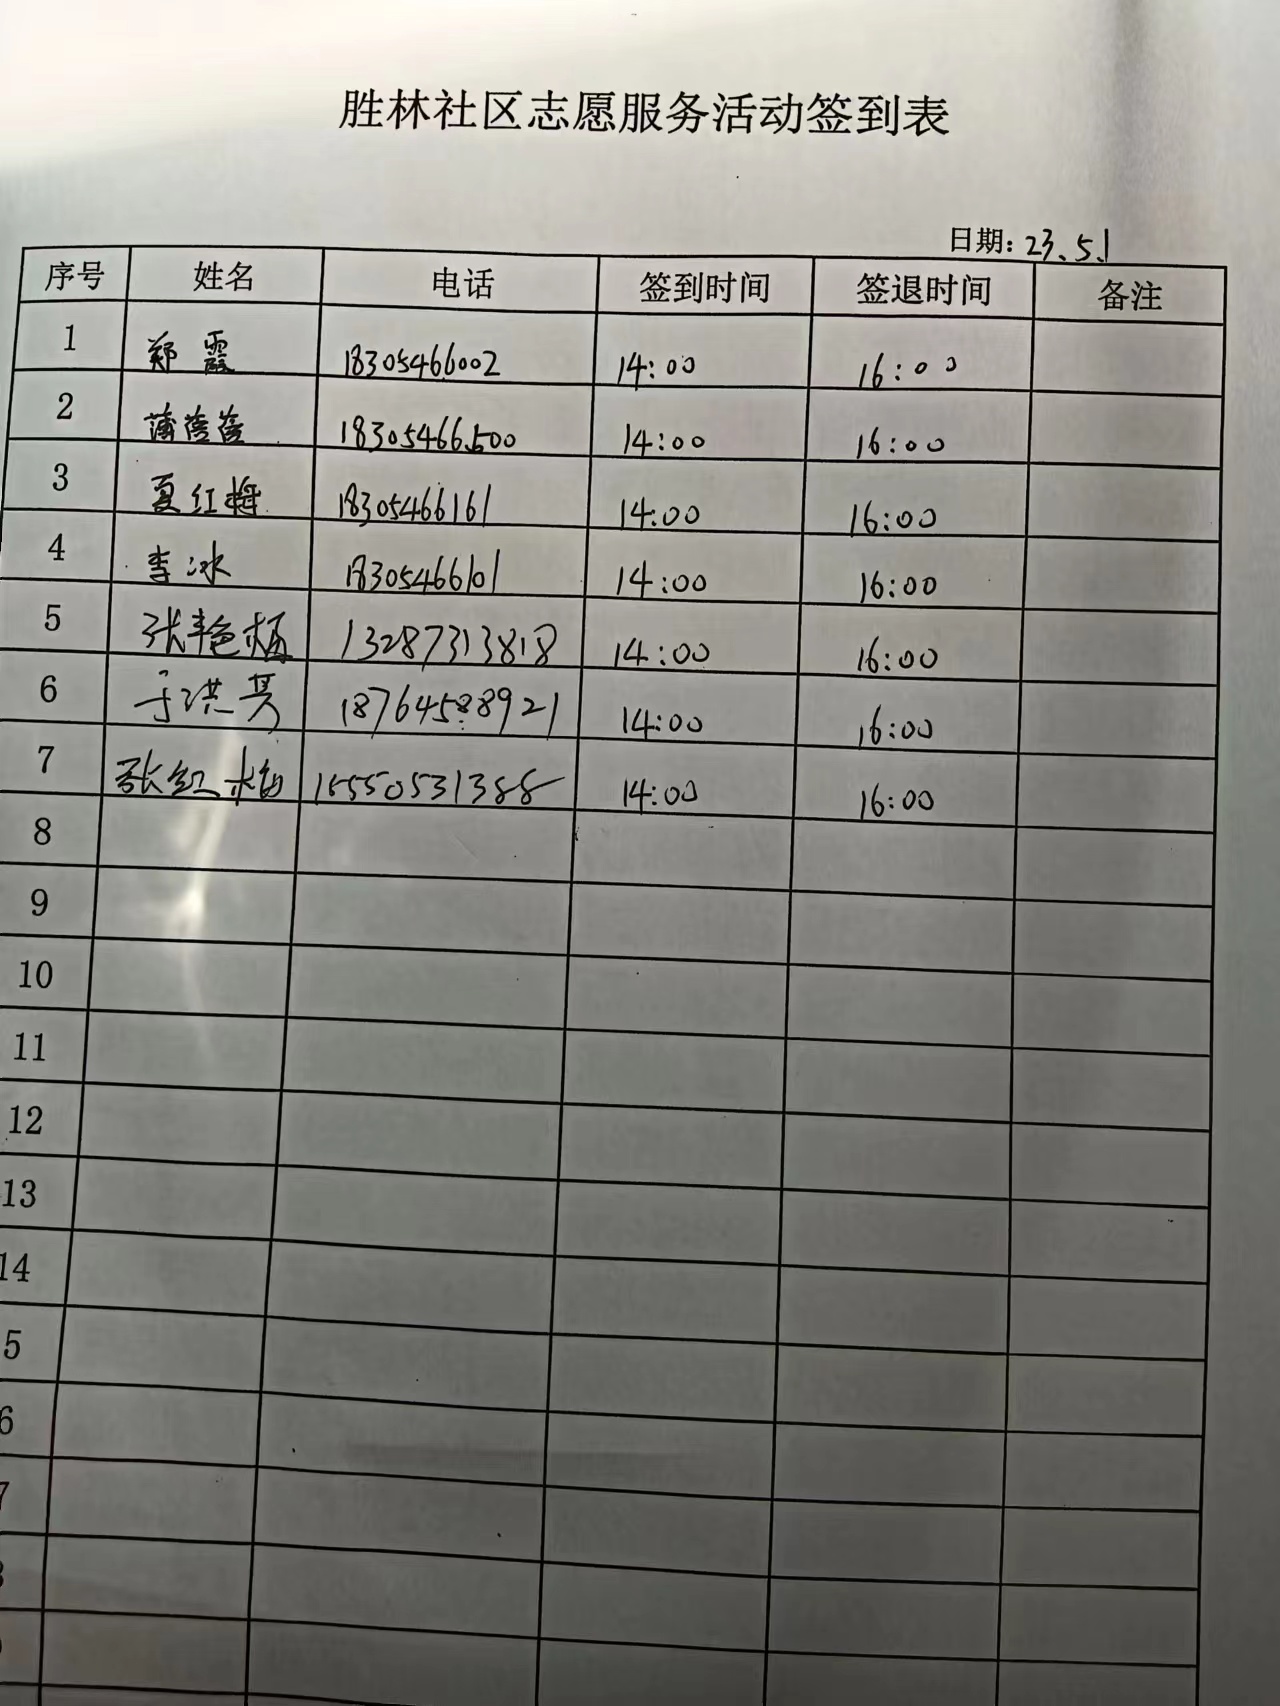 胜林社区志愿服务活动签到表
日期：23.5.1
序号 姓名 电话 签到时间 签退时间 备注
1 郑霞 18305466002 14:00 16:00
2 薄蓓蓓 18305466500 14:00 16:00
3 夏红梅 18305466161 14:00 16:00
4 李冰 18305466101 14:00 16:00
5 张艳 13287313818 14:00 16:00
6 于洪英 18764588921 14:00 16:00
7 张红梅 15550531388 14:00 16:00
8
9
10
11
12
13
14
5
6
7
8